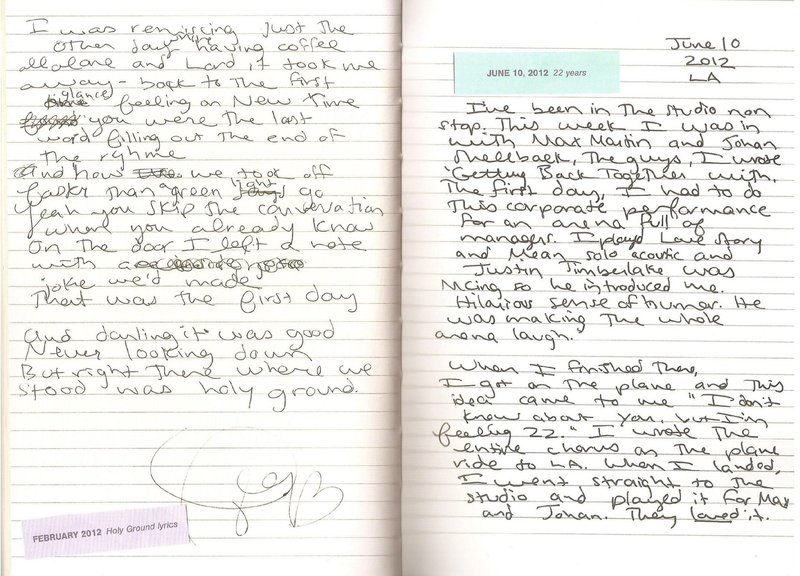 I was reminiscing just the
other day having coffee
all alone and Lord, it took me
away - back to the first
glance feeling on New Time
you were the last
word filling out the end of
the ryhme
And how we took off
faster than a green light go
Yeah you skip the conversation
when you already know
On the door I left a note
with a joke we'd made
That was the first day
And darling it was good
Never looking down
But right there where we
stood was holy ground.
FEBRUARY 2012 Holy Ground lyrics
JUNE 10, 2012 22 years
June 10
2012
LA
I've been in the studio non
stop. This week I was in
with Max Martin and Johan
Shellback, the guys, I wrote
"Getting Back Together with.
The first day, I had to do
this corporate performance
for an arena full of
managers. I played Love Story
and Mean solo acoustic and
Justin Timberlake was
MCing so he introduced me.
Hilarious sense of humor. He
was making the whole
arena laugh.
When I finished there,
I got on the plane and this
idea came to me "I don't
know about you, but I'm
feeling 22." I wrote the
entire chorus on the plane
ride to LA. When I landed,
I went straight to the
studio and played it for Max
and Johan. They loved it.